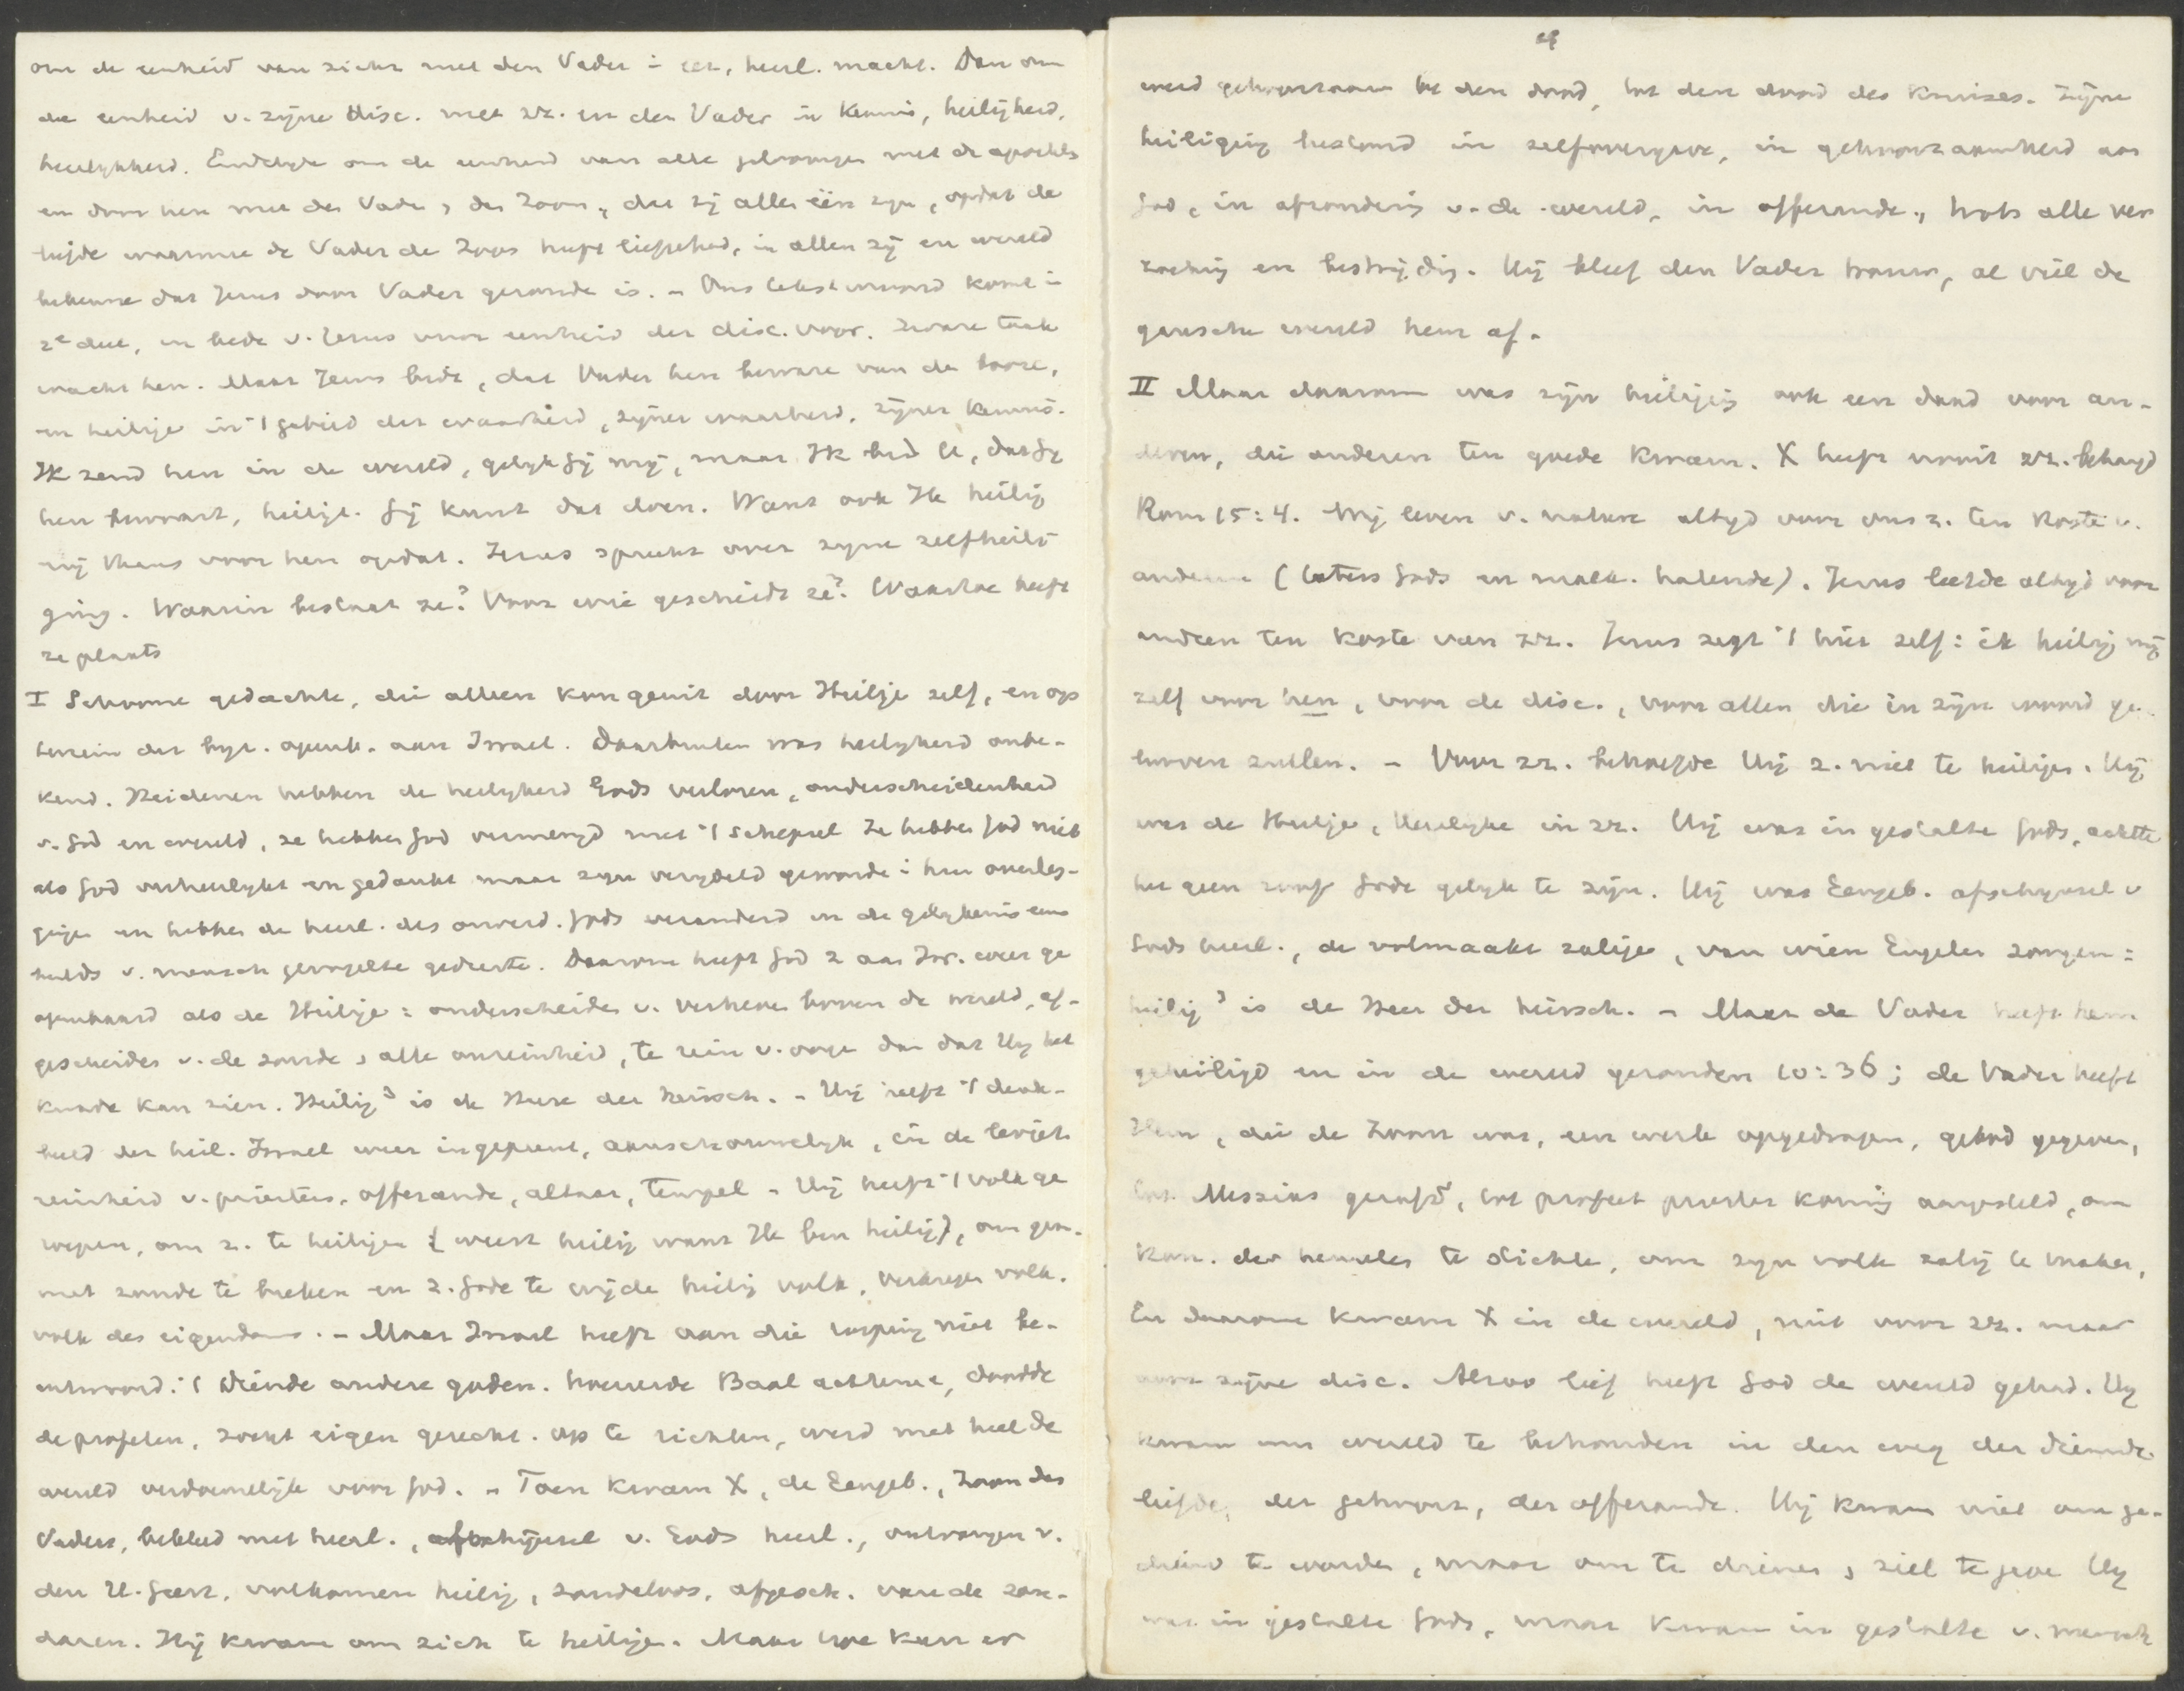 om de eenheid van zich met den Vader in eer, heerl. macht. Dan om
de eenheid v. zijne disc. met zr. en den Vader in kennis, heiligheid,
heerlijkheid. Eindelijk om de eenheid van alle geloovigen met de apostels
en door hen met den Vader, den Zoon, dat zij allen één zijn, opdat de
liefde waarmee de Vader de Zoon heeft liefgehad, in allen zij en wereld
bekenne dat Jezus door Vader gezonden is. - Ons tekstwoord komt in
2e deel, in bede v. Jezus voor eenheid der disc. voor. Zware taak
wacht hen. Maar Jezus bidt, dat Vader hen beware van den booze,
en heilige in 't gebied der waarheid, zijner waarheid, zijner kennis.
Ik zend hen in de wereld, gelijk Gij mij, maar Ik bid U, dat Gij
hen bewaart, heiligt. Gij kunt dat doen. Want ook Ik heilig
mij thans voor hen opdat. Jezus spreekt over zijne zelfheili-
ging. Waarin bestaat ze? Voor wie geschiedt ze? Waartoe heeft
ze plaats
I Schoone gedachte, die alleen kon geuit door Heilige zelf, en op
terrein der bijz. openb. aan Israel. Daarbuiten was heiligheid onbe-
kend. Heidenen hebben de heiligheid Gods verloren, onderscheidenheid
v. God en wereld, ze hebben God vermengd met 't schepsel Ze hebben God niet
als God verheerlijkt en gedankt maar zijn verijdeld geworden in hun overleg-
gingen en hebben de heerl. des onverd. Gods veranderd in de gelijkenis eens
beelds v. mensch gevogelte gedierte. Daarom heeft God z aan Isr. weer ge
openbaard als de Heilige: onderscheiden v. verheven boven de wereld, af-
gescheiden v. de zonde, alle onreinheid, te rein v. ooge dan dat Hij het
kwade kan zien. Heilig³ is de Heere der heirsch. - Hij heeft 't denk-
beeld der heil. Israel weer ingeprent, aanschouwelijk, in de leviet.
reinheid v. priesters, offerande, altaar, tempel - Hij heeft 't volk ge
roepen, om z. te heiligen (weest heilig want Ik ben heilig), om gem.
met zonde te breken en z. Gode te wijden heilig volk, verkregen volk.
volk des eigendoms. - Maar Israel heeft aan die roeping niet be-
antwoord. 't Diende andere goden. hoereerde Baal achterna, doodde
de profeten, zocht eigen gerecht. op te richten, werd met heel de
wereld verdoemelijk voor God. - Toen kwam X, de Eengeb., Zoon des
Vaders, bekleed met heerl., afschijnsel v. Gods heerl., ontvangen v.
den H. Geest, volkomen heilig, zondeloos, afgesch. van de zon-
daren. Hij kwam om zich te heiligen. Maar hoe kon er
werd gehoorzaam tot den dood, tot den dood des kruises. Zijne
heiliging bestond in zelfovergave, in gehoorzaamheid aan
God, in afzondering v. de wereld, in offerande, trots alle ver
zoeking en bestrijding. Hij bleef den Vader trouw, al viel de
gansche wereld hem af.
II Maar daarom was zijn heiliging ook een daad voor an-
deren, die anderen ten goede kwam. X heeft nooit zr. behaagd
Rom 15:4. Wij leven v. nature altijd voor ons z. ten koste v.
anderen (haters Gods en malk. hatende). Jezus leefde altijd voor
anderen ten koste van zr. Jezus zegt 't hier zelf: ik heilig mij
zelf voor hen, voor de disc., voor allen die in zijn woord ge-
looven zullen. - Voor zr. behoefde Hij z. niet te heiligen. Hij
was de Heilige, Heerlijke in zr. Hij was in gestalte Gods, achtte
het geen roof Gode gelijk te zijn. Hij was Eengeb. afschijnsel v
Gods heerl., de volmaakt zalige, van wien Engelen zongen:
heilig³ is de Heer der heirsch. - Maar de Vader heeft hem
geheiligd en in de wereld gezonden 10:36; de Vader heeft
Hem, die de Zoon was, een werk opgedragen, gebod gegeven,
tot Messias gezalfd, tot profeet priester koning aangesteld, om
kon. der hemelen te stichten, om zijn volk zalig te maken.
En daarom kwam X in de wereld, niet voor zr. maar
voor zijne disc. Alzoo lief heeft God de wereld gehad. Hij
kwam om wereld te behouden in den weg der dienende
liefde, der gehoorz., der offerande. Hij kwam niet om ge-
diend te worden, maar om te dienen, ziel te geven Hij
was in gestalte Gods, maar kwam in gestalte v. mensch